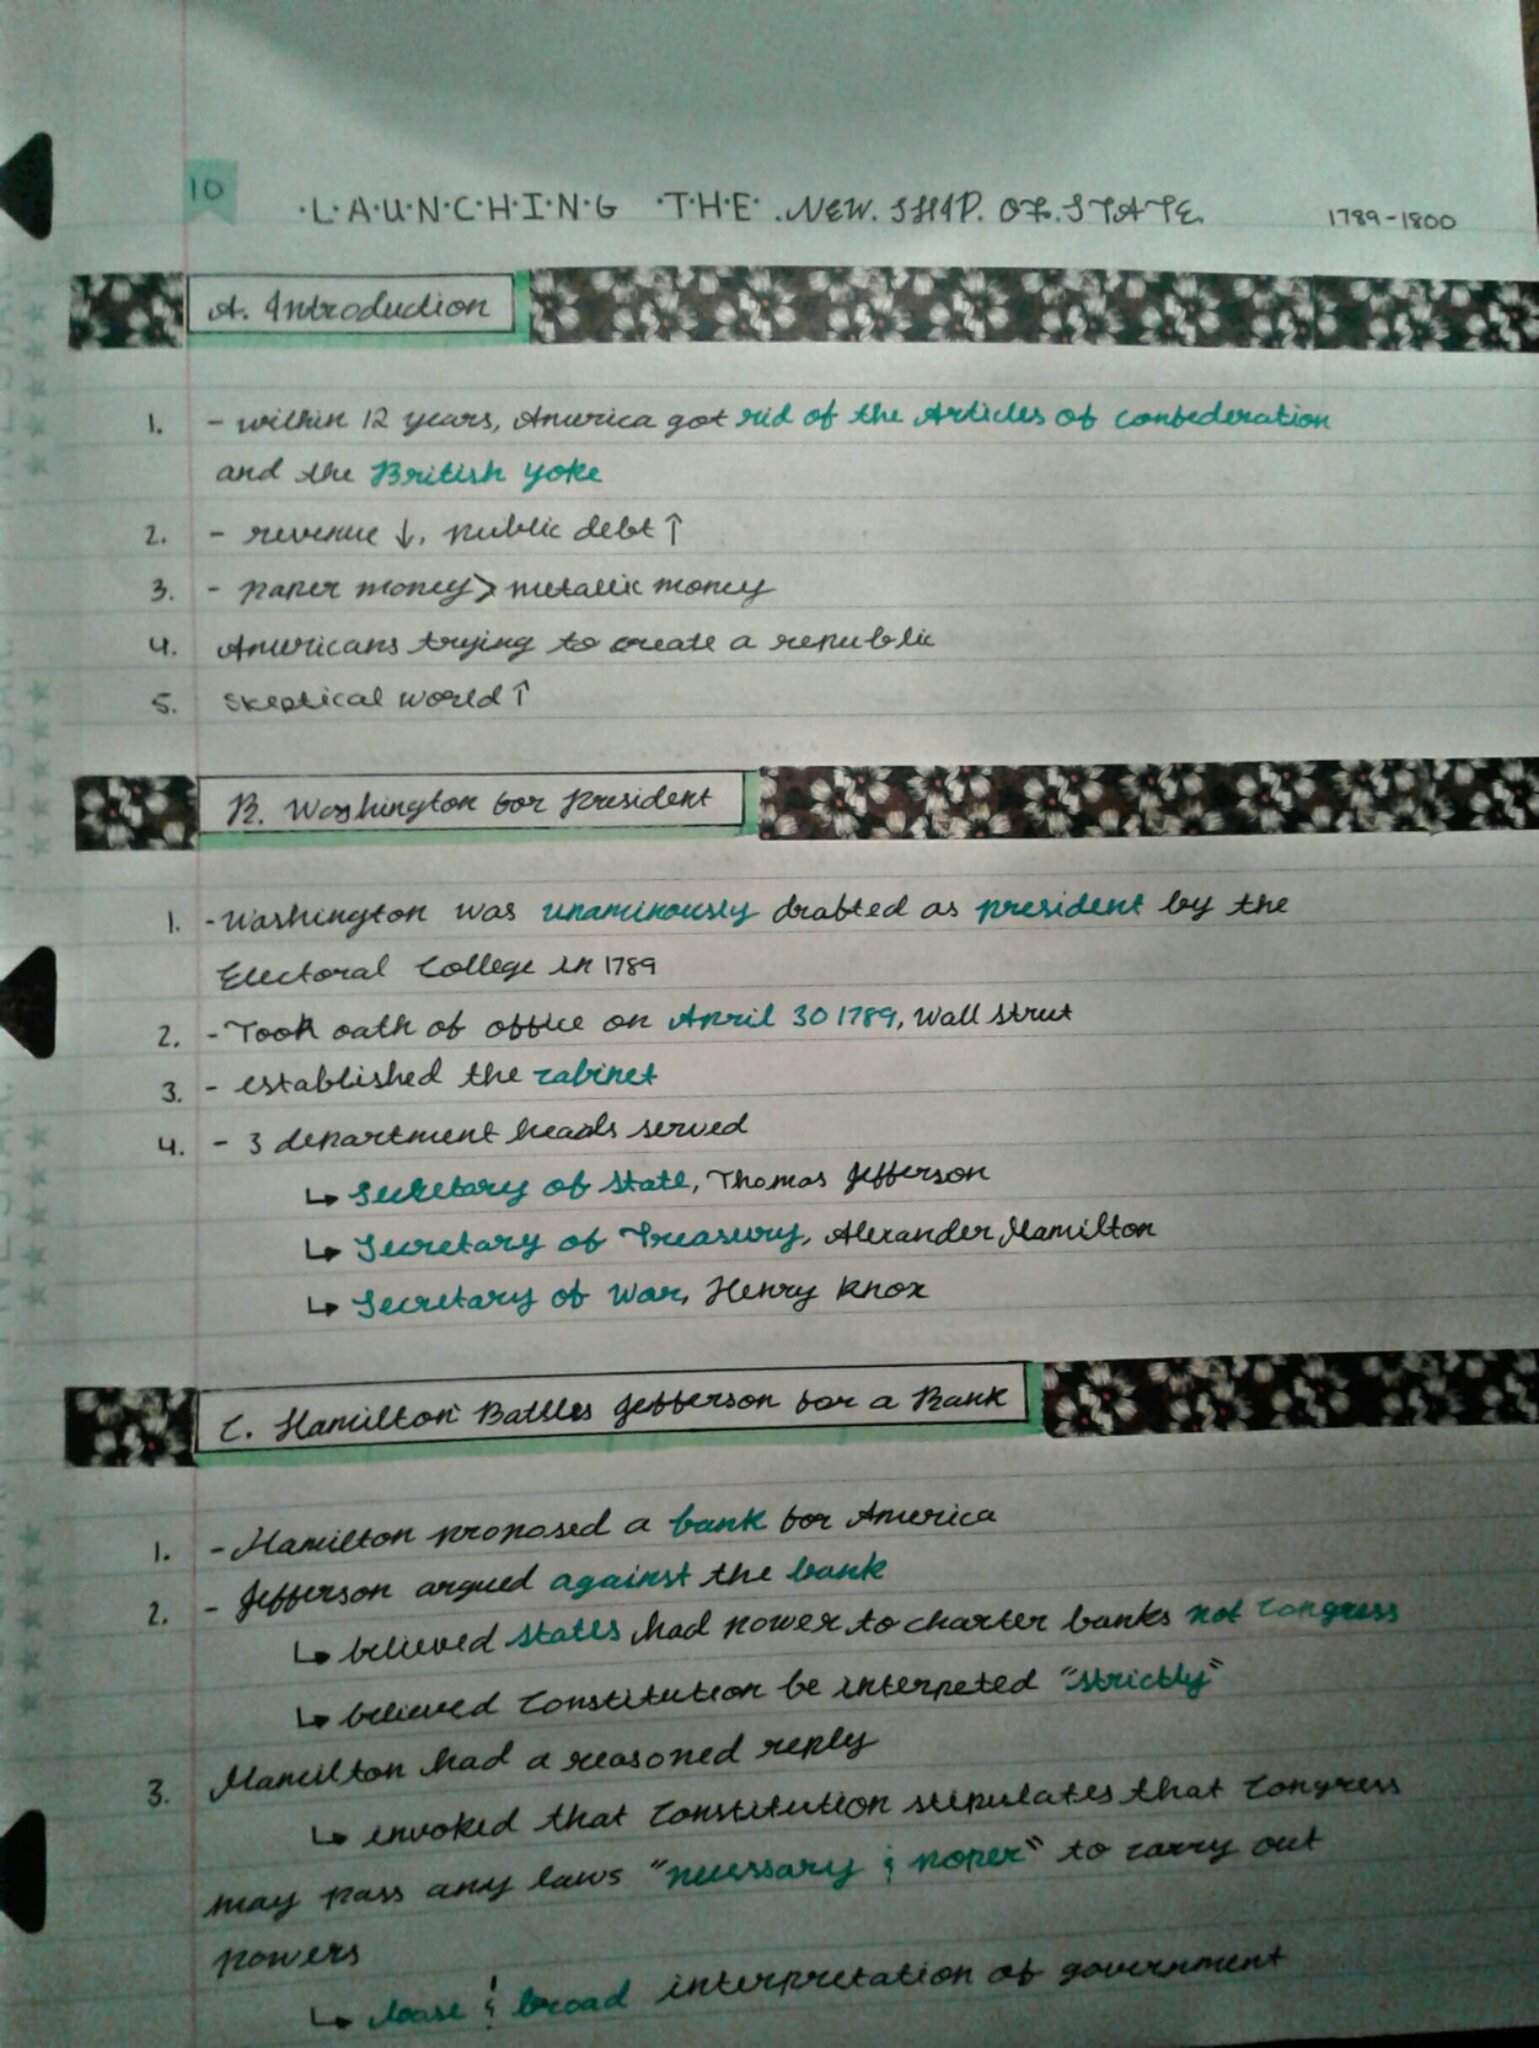 10
·L·A·U·N·C·H·I·N·G ·T·H·E· .NEW. SHIP. OF. STATE. 1789-1800
A. Introduction
1. - within 12 years, America got rid of the Articles of Confederation
and the British yoke
2. - revenue ↓, public debt ↑
3. - paper money > metallic money
4. Americans trying to create a republic
5. skeptical world ↑
B. Washington for President
1. - Washington was unaminously drafted as president by the
Electoral College in 1789
2. - Took oath of office on April 30 1789, Wall Street
3. - established the cabinet
4. - 3 department heads served
↳ Secretary of State, Thomas Jefferson
↳ Secretary of Treasury, Alexander Hamilton
↳ Secretary of War, Henry Knox
C. Hamilton Battles Jefferson for a Bank
1. - Hamilton proposed a bank for America
2. - Jefferson argued against the bank
↳ believed states had power to charter banks not Congress
↳ believed Constitution be interpeted "strictly"
3. Hamilton had a reasoned reply
↳ invoked that Constitution stipulates that Congress
may pass any laws "necessary & poper" to carry out
powers
↳ loose & broad interpretation of government